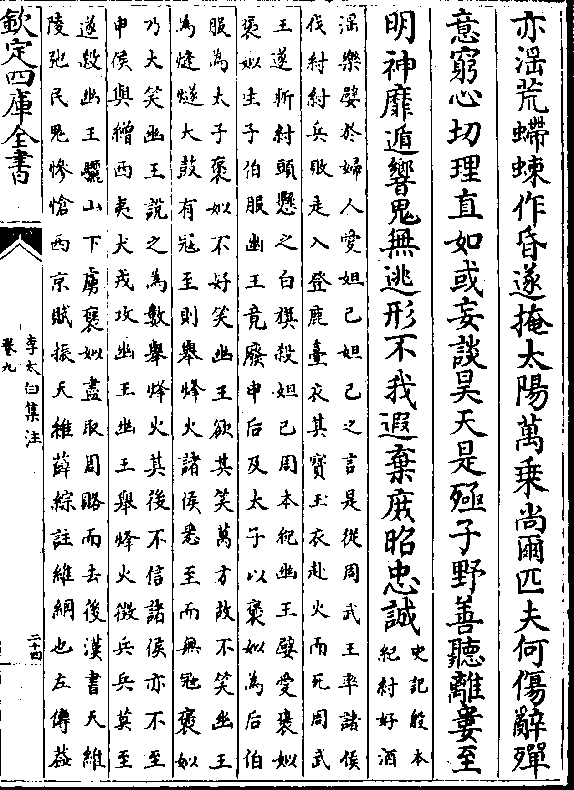 亦淫荒螮蝀作昏遂掩太陽萬乗尚爾匹夫何傷辭殫
意窮心切理直如或妄談昊天是殛子野善聽離婁至
明神靡遁響鬼無逃形不我遐棄庶昭忠誠
史記殷本
紀紂好酒
淫樂嬖於婦人愛妲己妲己之言是從周武王率諸侯
伐紂紂兵敗走入登鹿臺衣其寶玉衣赴火而死周武
王遂斬紂頭懸之白旗殺妲己周本紀幽王嬖愛褒姒
褒姒生子伯服幽王竟廢申后及太子以褒姒為后伯
服為太子褒姒不好笑幽王欲其笑萬方故不笑幽王
為㷭燧大鼓有冦至則舉烽火諸侯悉至而無冦褒姒
乃大笑幽王說之為數舉烽火其後不信諸侯亦不至
申侯與繒西夷犬戎攻幽王幽王舉烽火徵兵兵莫至
遂殺幽王驪山下虜褒姒盡取周賂而去後漢書天維
陵弛民鬼慘愴西京賦振天維薛綜註維網也左傳菑
欽定四庫全書
李太白集注
卷九
二十四